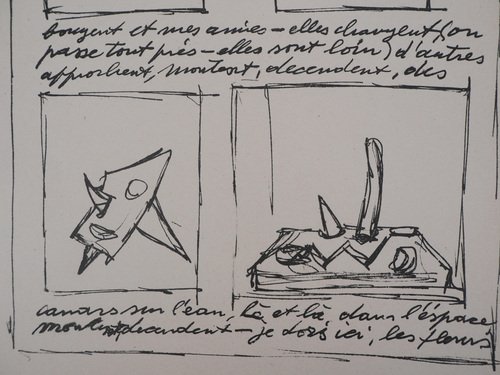 bougent et mes amies - elles changent (on
passe tout près - elles sont loin) d'autres
approchent, montent, decendent, des
canars sur l'eau, là et là dans l'éspace
montent decendent - je dors ici, les fleurs